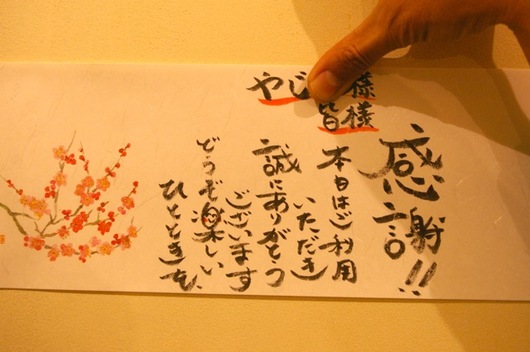 感謝!!
やじ 様
皆様
本日はご利用
いただき
誠にありがとう
ございます
どうぞ楽しい
ひとときを、